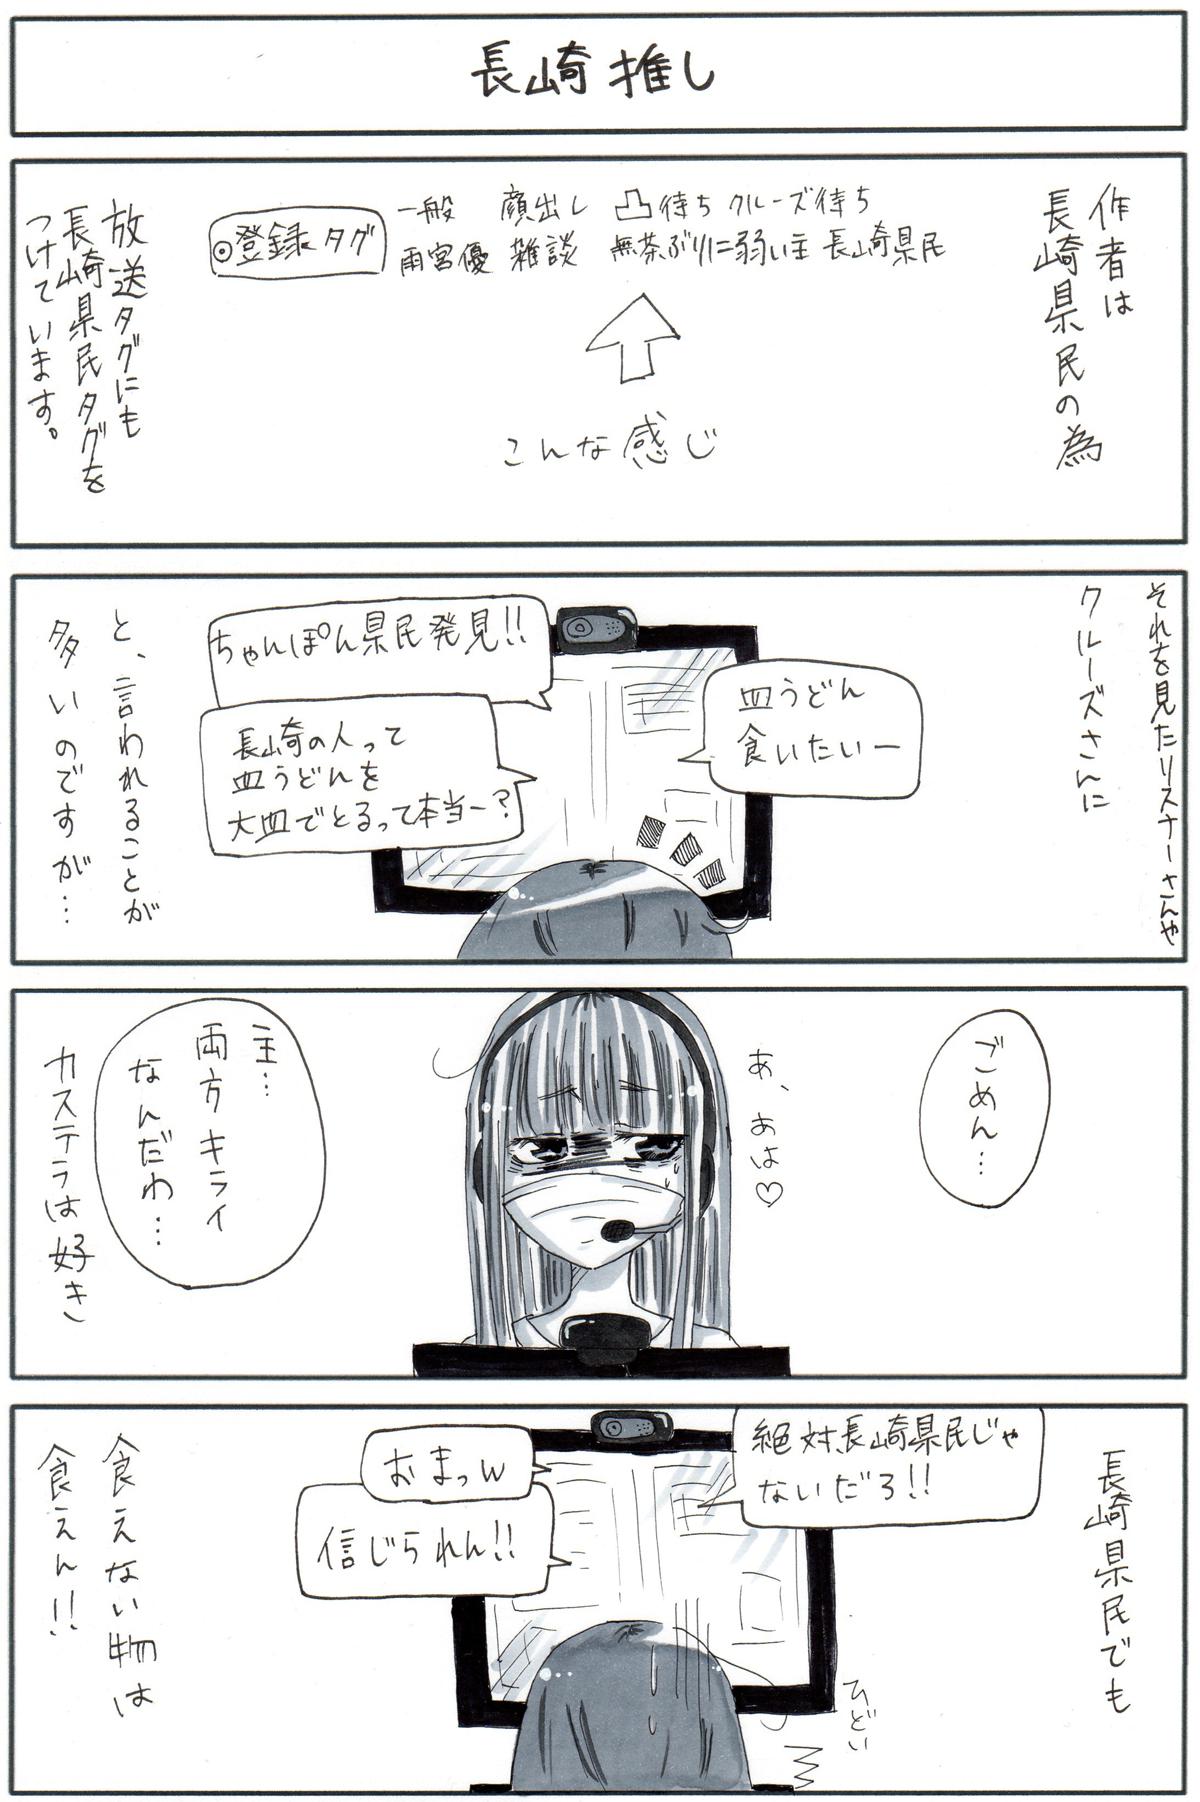 長崎推し
作者は
長崎県民の為
◎登録タグ
一般 顔出し 凸待ち クルーズ待ち
雨宮優 雑談 無茶ぶりに弱い主 長崎県民
こんな感じ
放送タグにも
長崎県民タグを
つけています。
それを見たリスナーさんや
クルーズさんに
皿うどん
食いたいー
ちゃんぽん県民発見!!
長崎の人って
皿うどんを
大皿でとるって本当ー?
と、言われることが
多いのですが…
ごめん…
あ、あは♡
主…
両方キライ
なんだわ…
カステラは好き
長崎県民でも
絶対長崎県民じゃ
ないだろ!!
おまっw
信じられん!!
ひどい
食えない物は
食えん!!